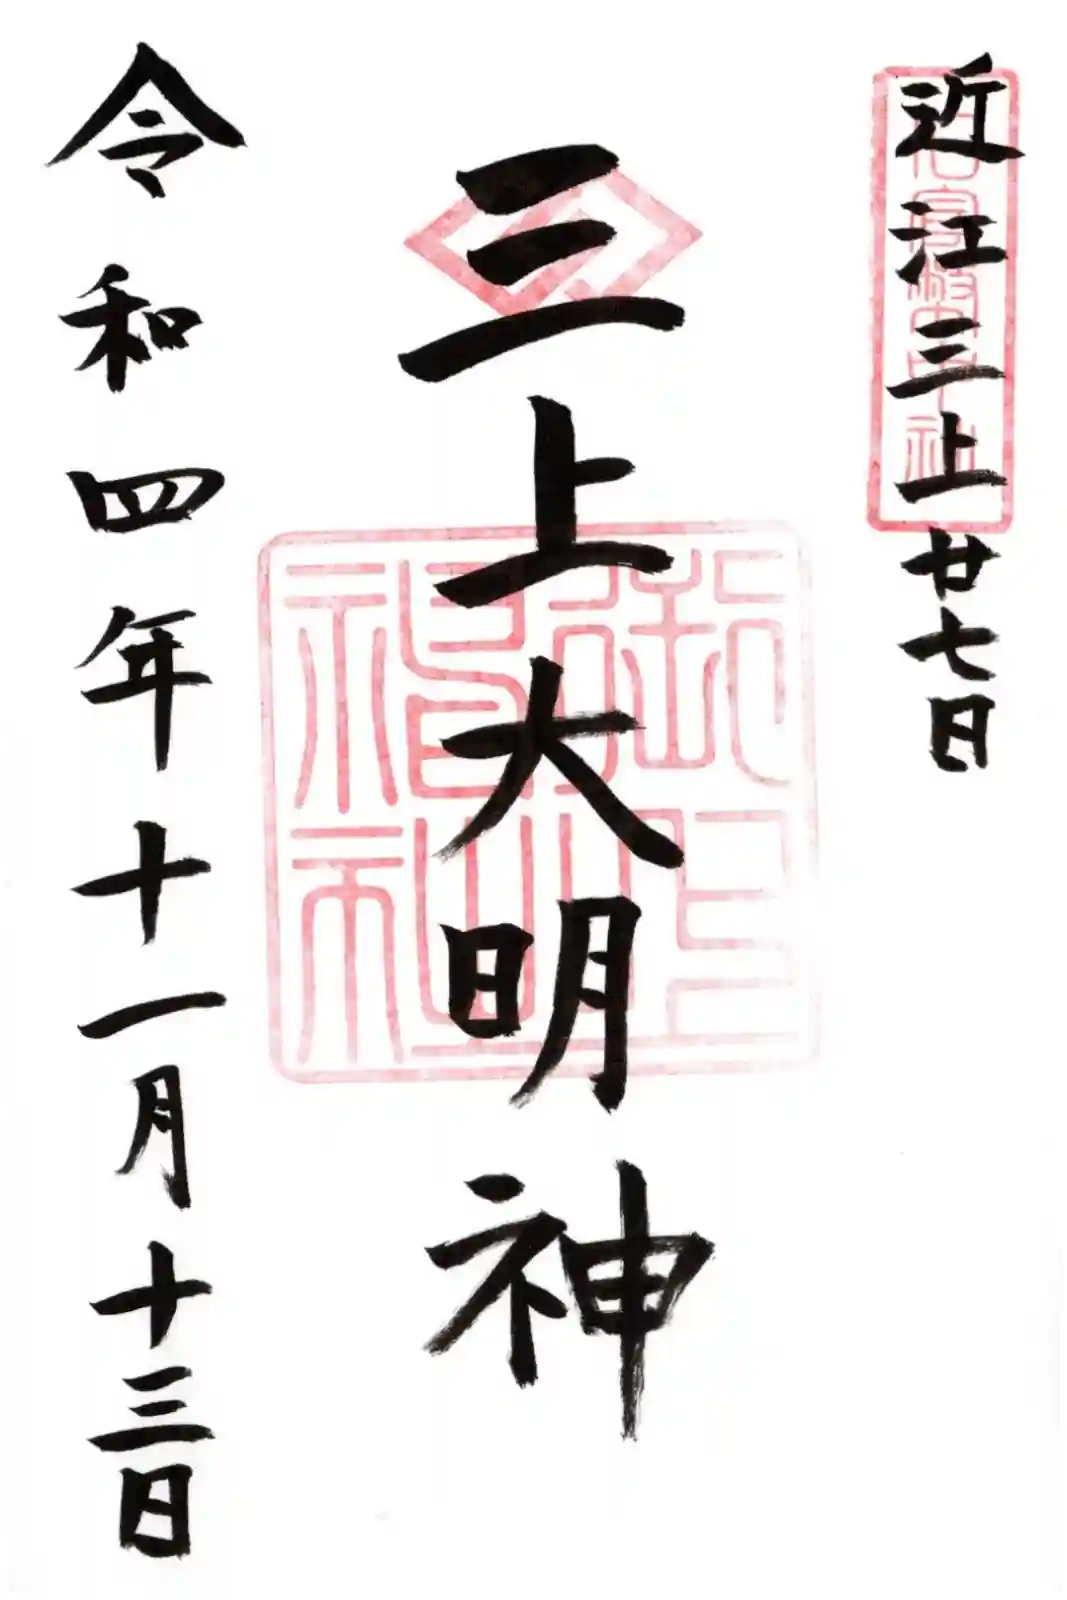 近江三上廿七日
三上大明神
令和四年十一月十三日
御上神社